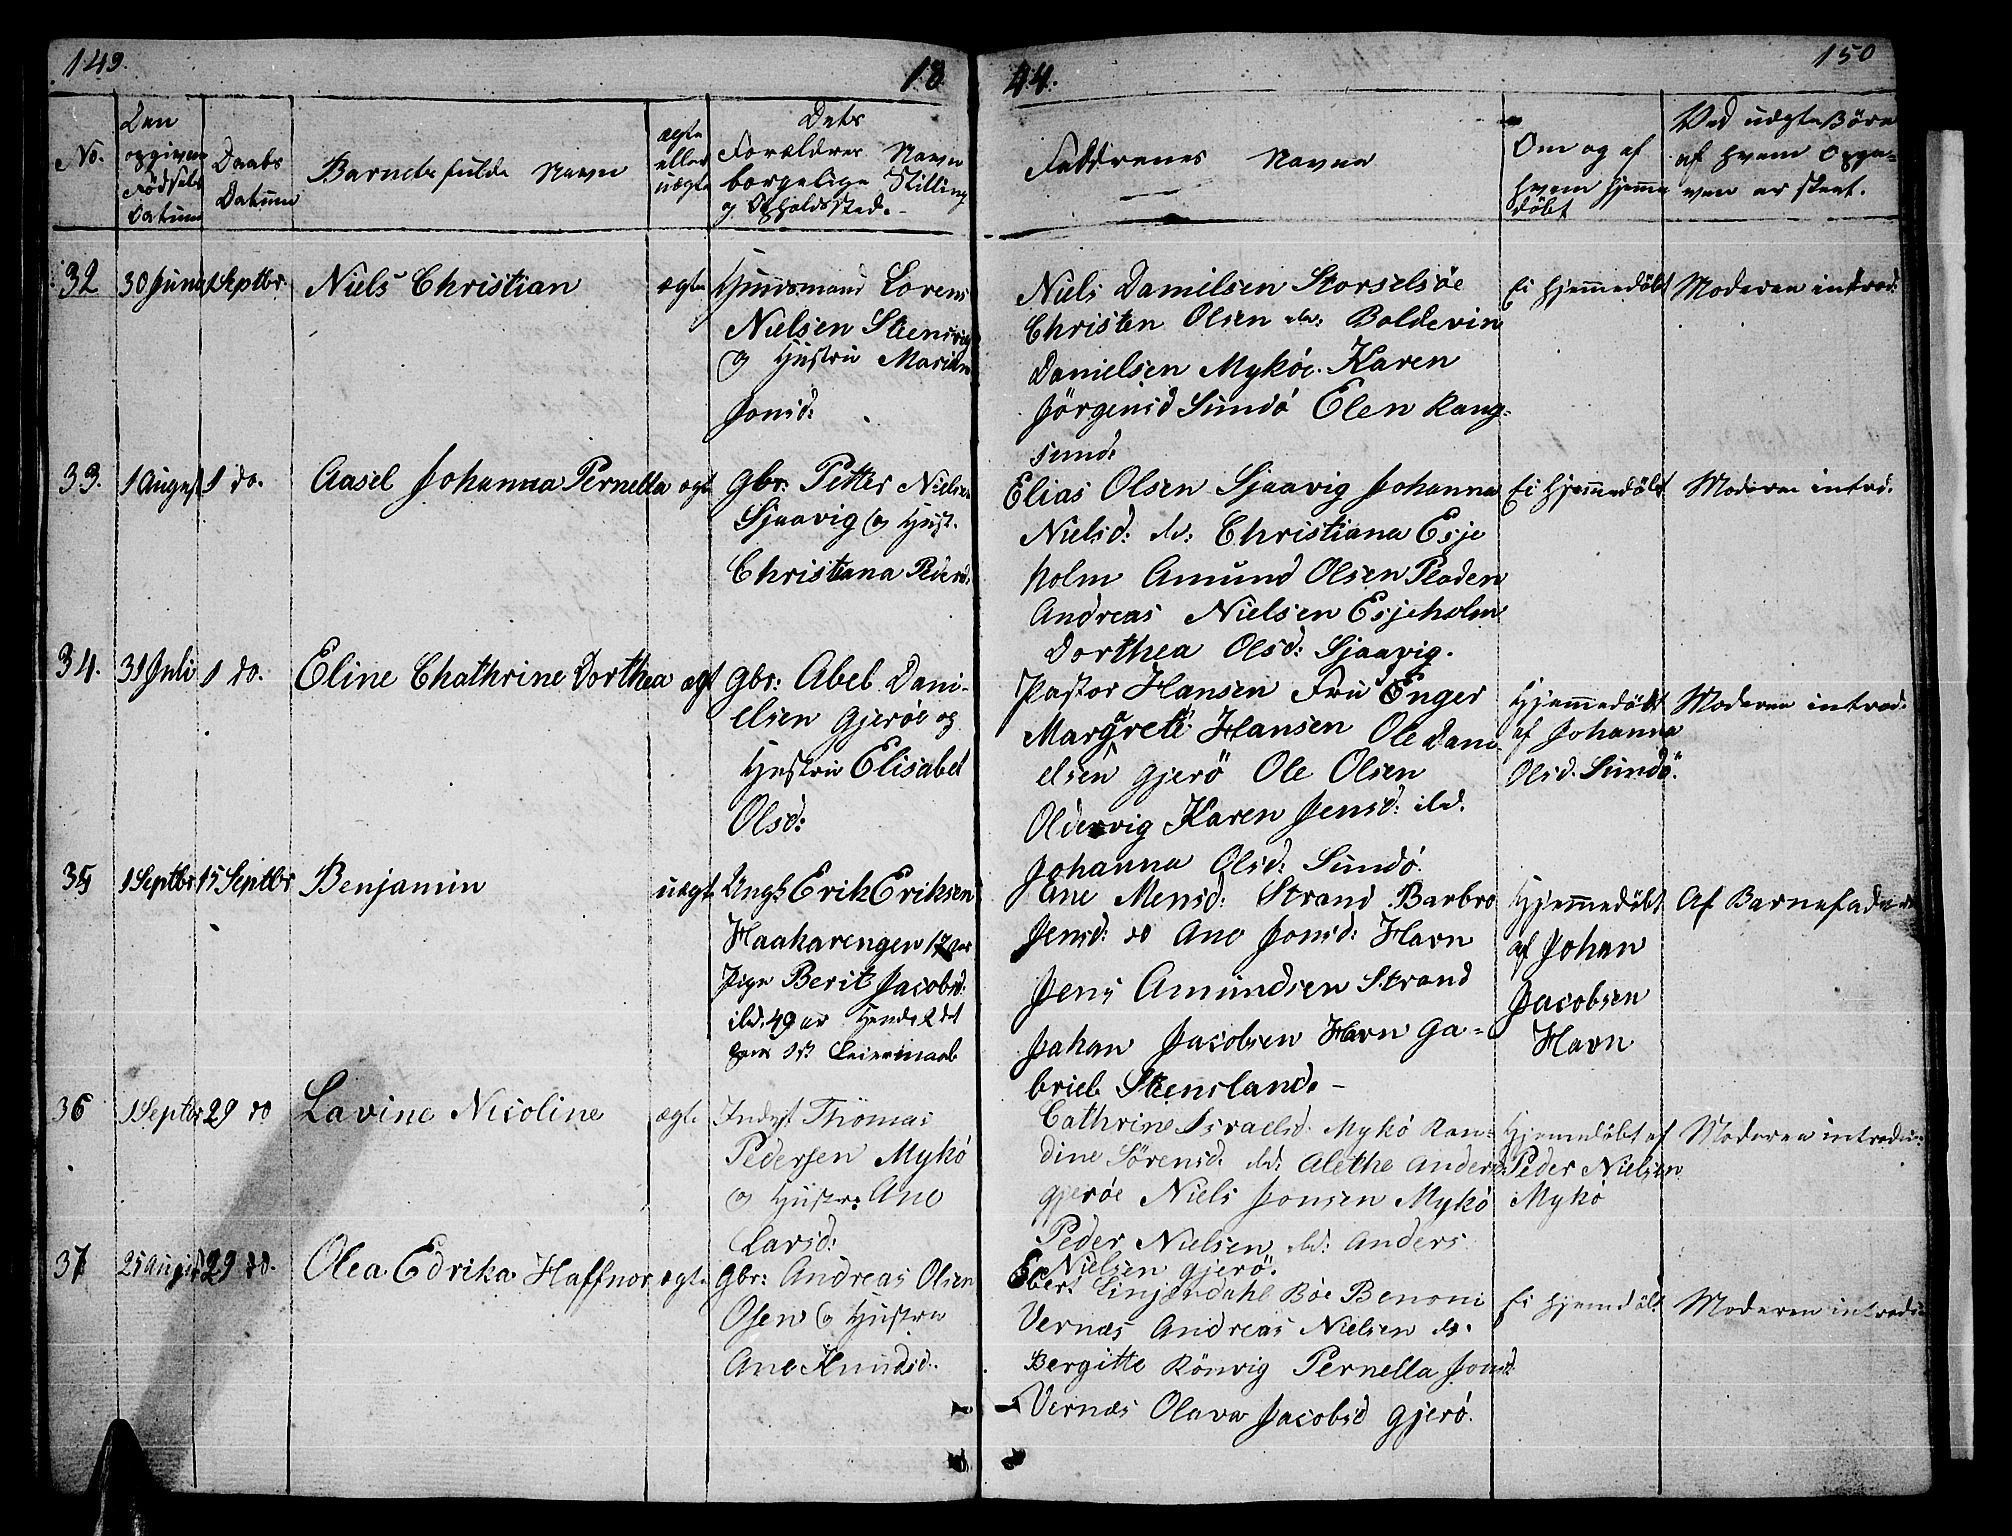 149.
18
44.
150
No.
Den
opgivne
Födsels
Datum
Daabs
Datum
Barnets fulde Navn
ægte
eller
uægte
Dets
Forældres Navn
borgelige Stilling
og Opholdssted.
Faddrenes Navne
Om og af
hvem hjemme
döbt
Ved uægte Börn
af hvem Opga-
ven er skeet.
32
30 Juni
1 Septbr.
Niels Christian
ægte
Huusmand Lorens
Nielsen Stensvig
og Hustru Maria
Jonsd:
Niels Danielsen Storselsöe
Christen Olsen ibd: Boldevin
Danielsen Myköe. Karen
Jörgensd Sundö Elen Rang-
sund.
Ei hjemmedöbt
Moderen introd:
33.
1 August
1 do.
Aasel Johanna Pernella
ægt
Gbr: Petter Nielsen
Sjaavig og Hust.
Christiana Pedersd.
Elias Olsen Sjaavig Johanna
Nielsd: ibd: Christiana Esje
holm Amund Olsen Pladen
Andreas Nielsen Esjeholm
Dorthea Olsd: Sjaavig.
Ei hjemmedöbt
Moderen introd.
34.
31 Juli
1 do.
Eline Chathrine Dorthea
ægt
Gbr: Abel Dani-
elsen Gjeröe og
Hustru Elisabet
Olsd:
Pastor Hansen Fru Enger
Margrete Hansen Ole Dani
elsen Gjerö Ole Olsen
Oldervig Karen Jensd: ibd.
Johanna Olsd: Sundö.
Hjemmedöbt
af Johanna
Olsd. Sundö.
Moderen introd.
35
1 Septbr
15 Septbr
Benjamin
uægt
Ungk Erik Eriksen
Haakarengen 17 Aar
Pige Berit Jacobsd:
ibd. 49 ar Hendes 2det
hans 1st Leiermaal
Ane Mensd: Strand Barbro
Jensd: do Ane Jonsd: Havn
Jens Amundsen Strand
Johan Jacobsen Havn Ga-
briel Stensland. -
Hjemmedöbt
af Johan
Jacobsen
Havn
Af Barnefaderen
36
1 Septbr
29 do
Lavine Nicoline
ægte
Inderst Thomas
Pedersen Mykö
og Hustr: Ane
Larsd:
Cathrine Israelsd: Mykö Ran-
dine Sörensd. ibd: Alethe Andersd:
Gjeröe Niels Jonsen Mykö
Peder Nielsen ibd: Anders
Nielsen Gjerö.
Hjemmedöbt af
Peder Nielsen
Mykö
Moderen introdu:
37
25 August
29 do.
Olea Edrika Haffnor
ægte
Gbr: Andreas Olsen
Osen og Hustru
Ane Knudsd.
Ebert Linjendahl Böe Benoni
Vernæs Andreas Nielsen do.
Bergitte Rönvig Pernella Jonsd:
Vernæs Olava Jacobsd Gjerö.
Ei hjemdöbt
Moderen introdu